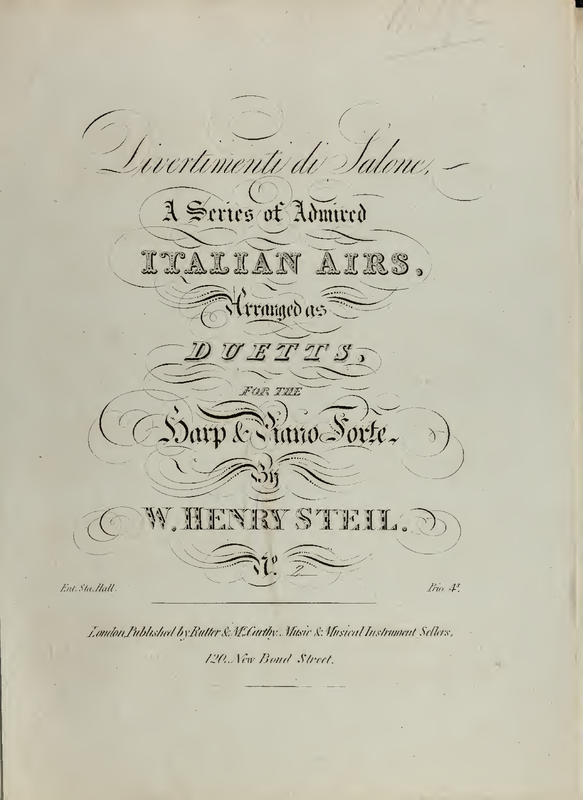 Divertimenti di Salone,
A Series of Admired
ITALIAN AIRS,
Arranged as
DUETTS,
FOR THE
Harp & Piano Forte.
By
W. HENRY STEIL.
No. 2
Ent. Sta. Hall.
Price 4s.
London, Published by Rutter & McCarthy, Music & Musical Instrument Sellers,
120, New Bond Street.